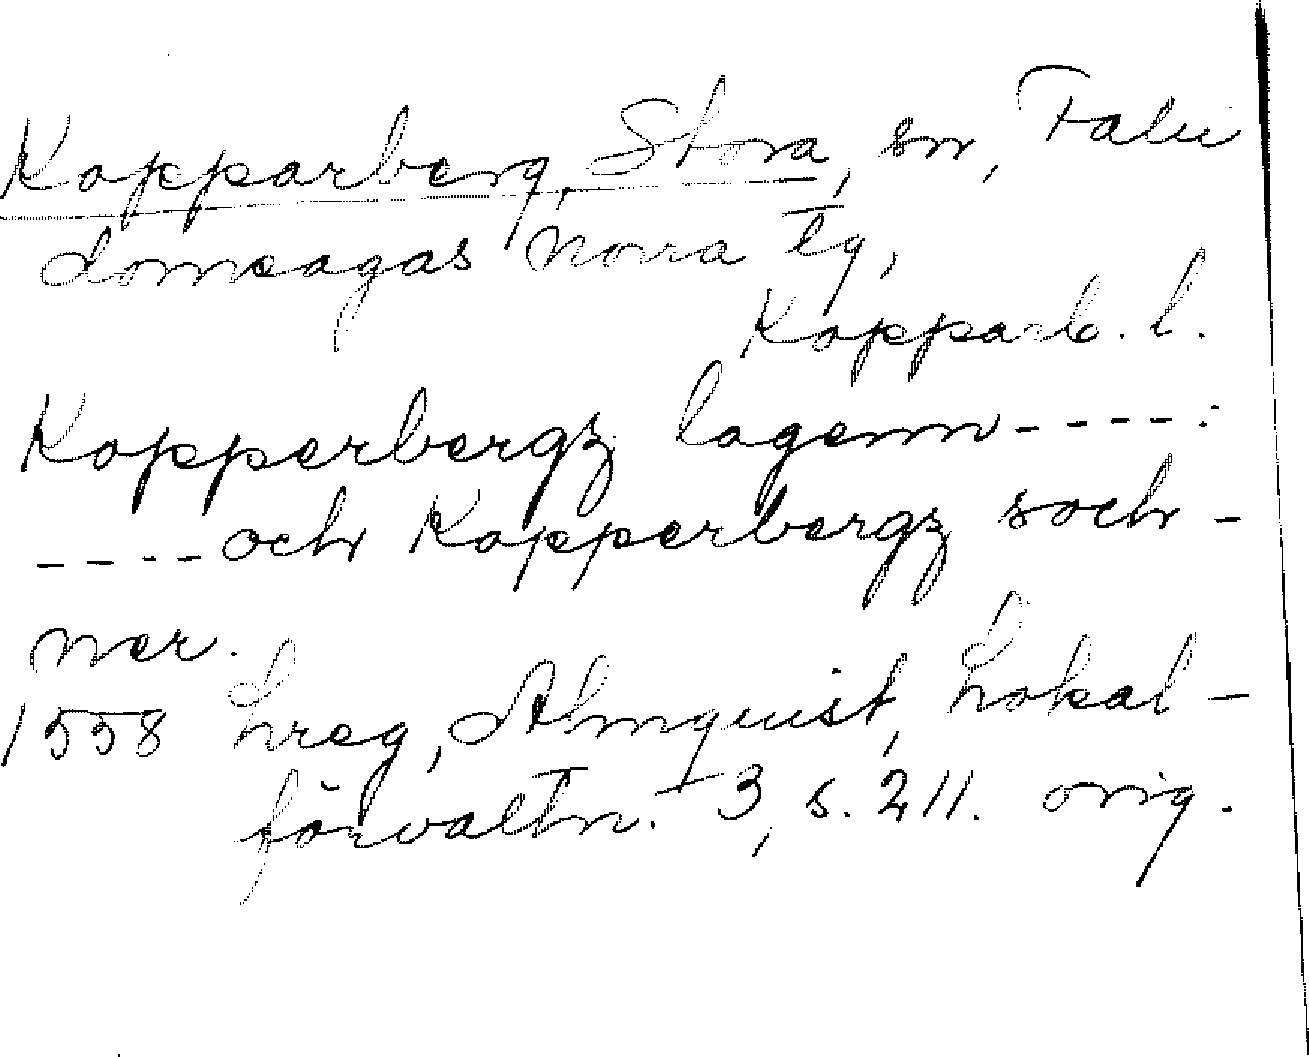 Kopparberg, Stora, sn, Falu
domsagas norra tg,
Kopparb. l.
Kopperbergz lagenn - - - - :
- - - - och Kopperbergz soch -
ner.
1558 Lreg, Almquist, Lokal -
förvaltn. 3, s. 211. orig.